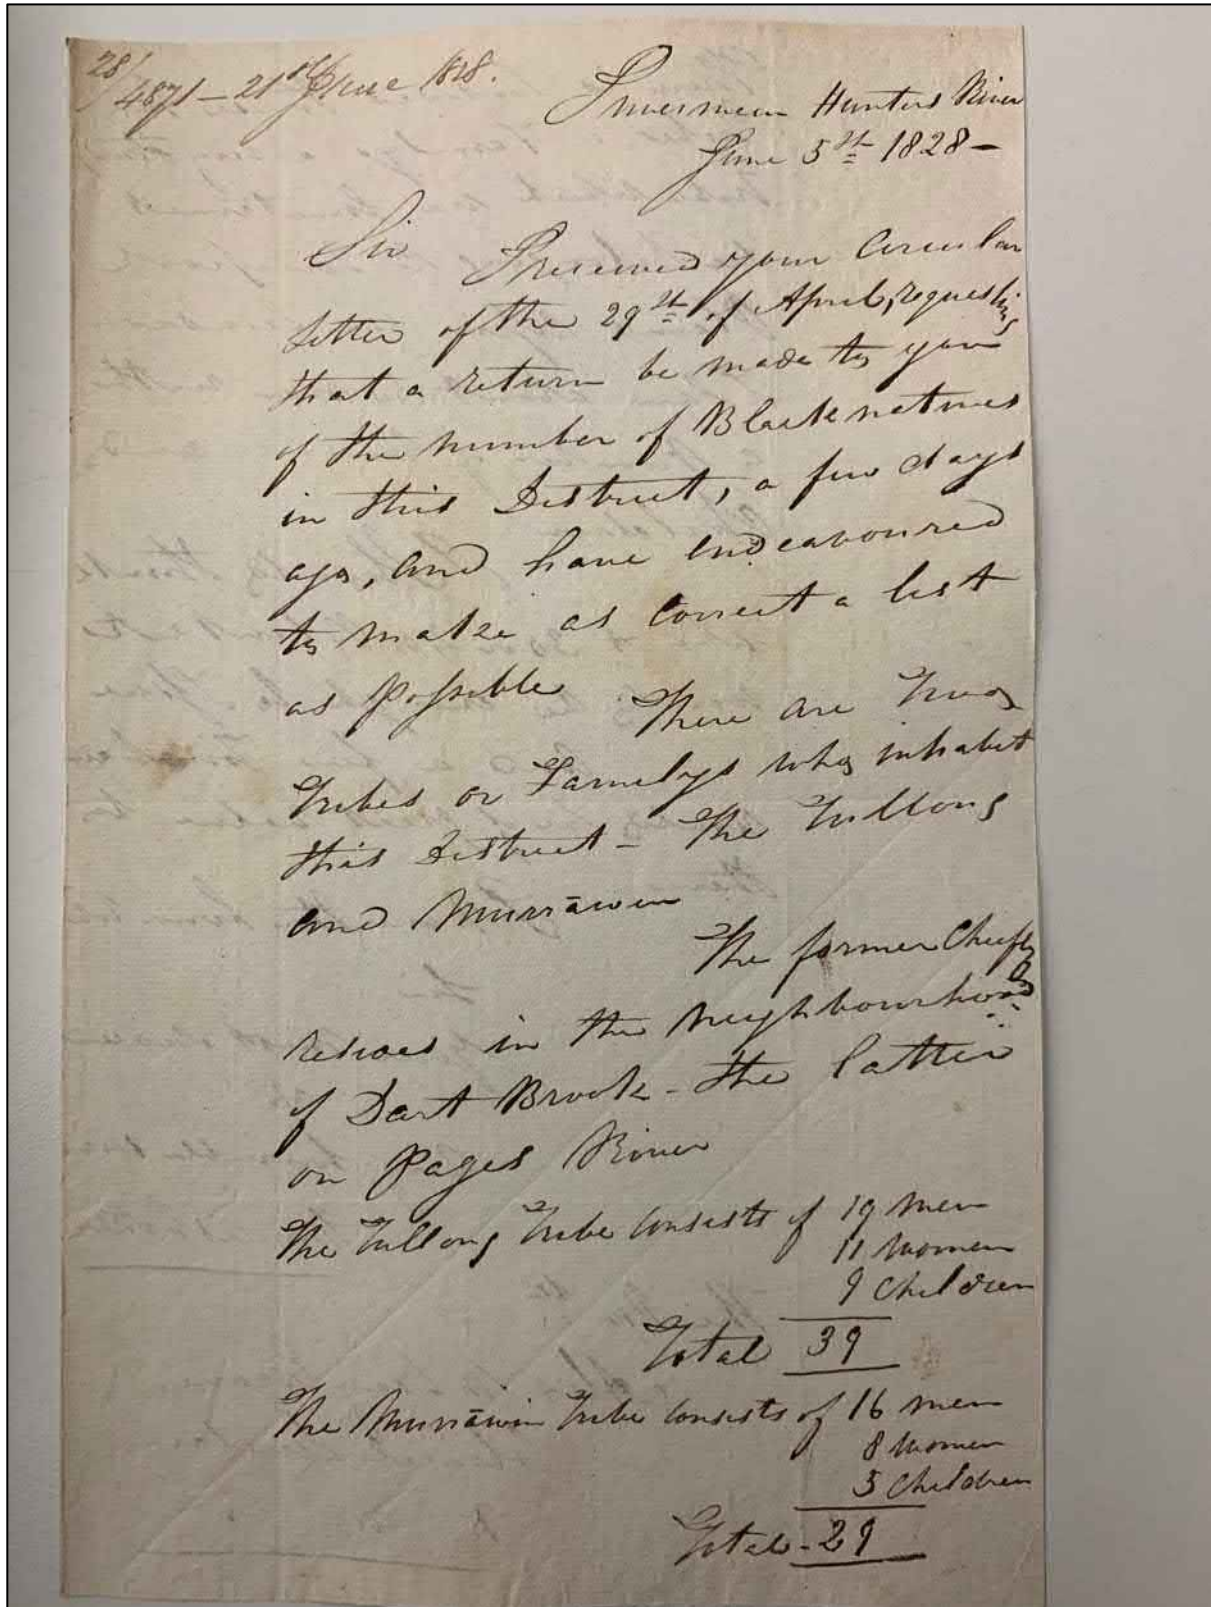 28/4871 - 21st June 1828.
Invermein Hunters River
June 5th 1828 -
Sir I received your Circular
letter of the 29th of April, requesting
that a return be made to you
of the number of Black natives
in this District, a few days
ago, and have endeavoured
to make as correct a list
as possible There are two
tribes or Familys who inhabit
this District - The Tullong
and Murrāwin
The former Chiefly
resides in the Neighbourhood
of Dart Brook - the latter
on Pages River
The Tullong tribe consists of 19 Men
11 Women
9 Children
Total 39
The Murrāwin tribe consists of 16 men
8 Women
5 Children
Total - 29